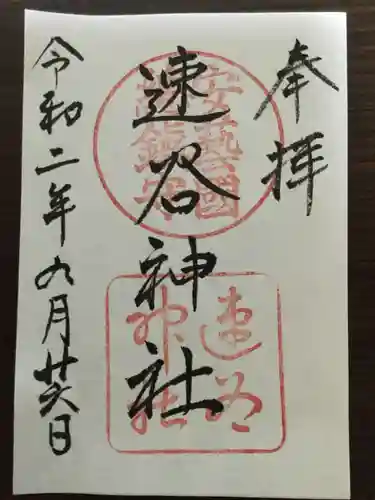 奉拝
速谷神社
安藝國
総鎮守
速谷
神社
令和二年九月廿六日